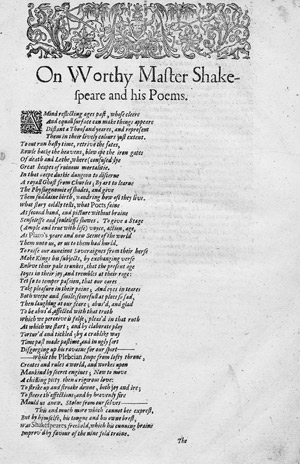 On Worthy Maſter Shake-
ſpeare and his Poems.
A Mind reflecting ages paſt, whoſe cleere
And equall ſurface can make things appeare
Diſtant a Thouſand yeares, and repreſent
Them in their lively colours juſt extent.
To out run haſty time, retrive the fates,
Rowle backe the heavens, blow ope the iron gates
Of death and Lethe, where (confuſed) lye
Great heapes of ruinous mortalitie.
In that deepe duskie dungeon to diſcerne
A royall Ghoſt from Churles; By art to learne
The Phyſiognomie of ſhades, and give
Them ſuddaine birth, wondring how oft they live.
What ſtory coldly tells, what Poets faine
At ſecond hand, and picture without braine
Senſeleſſe and ſouleleſſe ſhowes. To give a Stage
(Ample and true with life) voyce, action, age,
As Plato's yeare and new Scene of the world
Them unto us, or us to them had hurld.
To raiſe our auncient Soveraignes from their herſe
Make Kings his ſubjects, by exchanging verſe
Enlive their pale trunkes, that the preſent age
Ioyes in their joy, and trembles at their rage:
Yet ſo to temper paſſion, that our eares
Take pleaſure in their paine; And eyes in teares
Both weepe and ſmile; fearefull at plots ſo ſad,
Then laughing at our feare; abus'd, and glad
To be abus'd, affected with that truth
Which we perceive is falſe; pleas'd in that ruth
At which we ſtart; and by elaborate play
Tortur'd and tickled; by a crablike way
Time paſt made paſtime, and in ugly ſort
Diſgorging up his ravaine for our ſport
while the Plebeian Impe from lofty throne,
Creates and rules a world, and workes upon
Mankind by ſecret engines; Now to move
A chilling pitty, then a rigorous love:
To ſtrike up and ſtroake downe, both joy and ire;
To ſteere th'affections; and by heavenly fire
Mould us anew. Stolne from our ſelves
This and much more which cannot bee expreſt,
But by himſelfe, his tongue and his owne breſt,
Was Shakeſpeares freehold, which his cunning braine
Improv'd by favour of the nine fold traine.
The